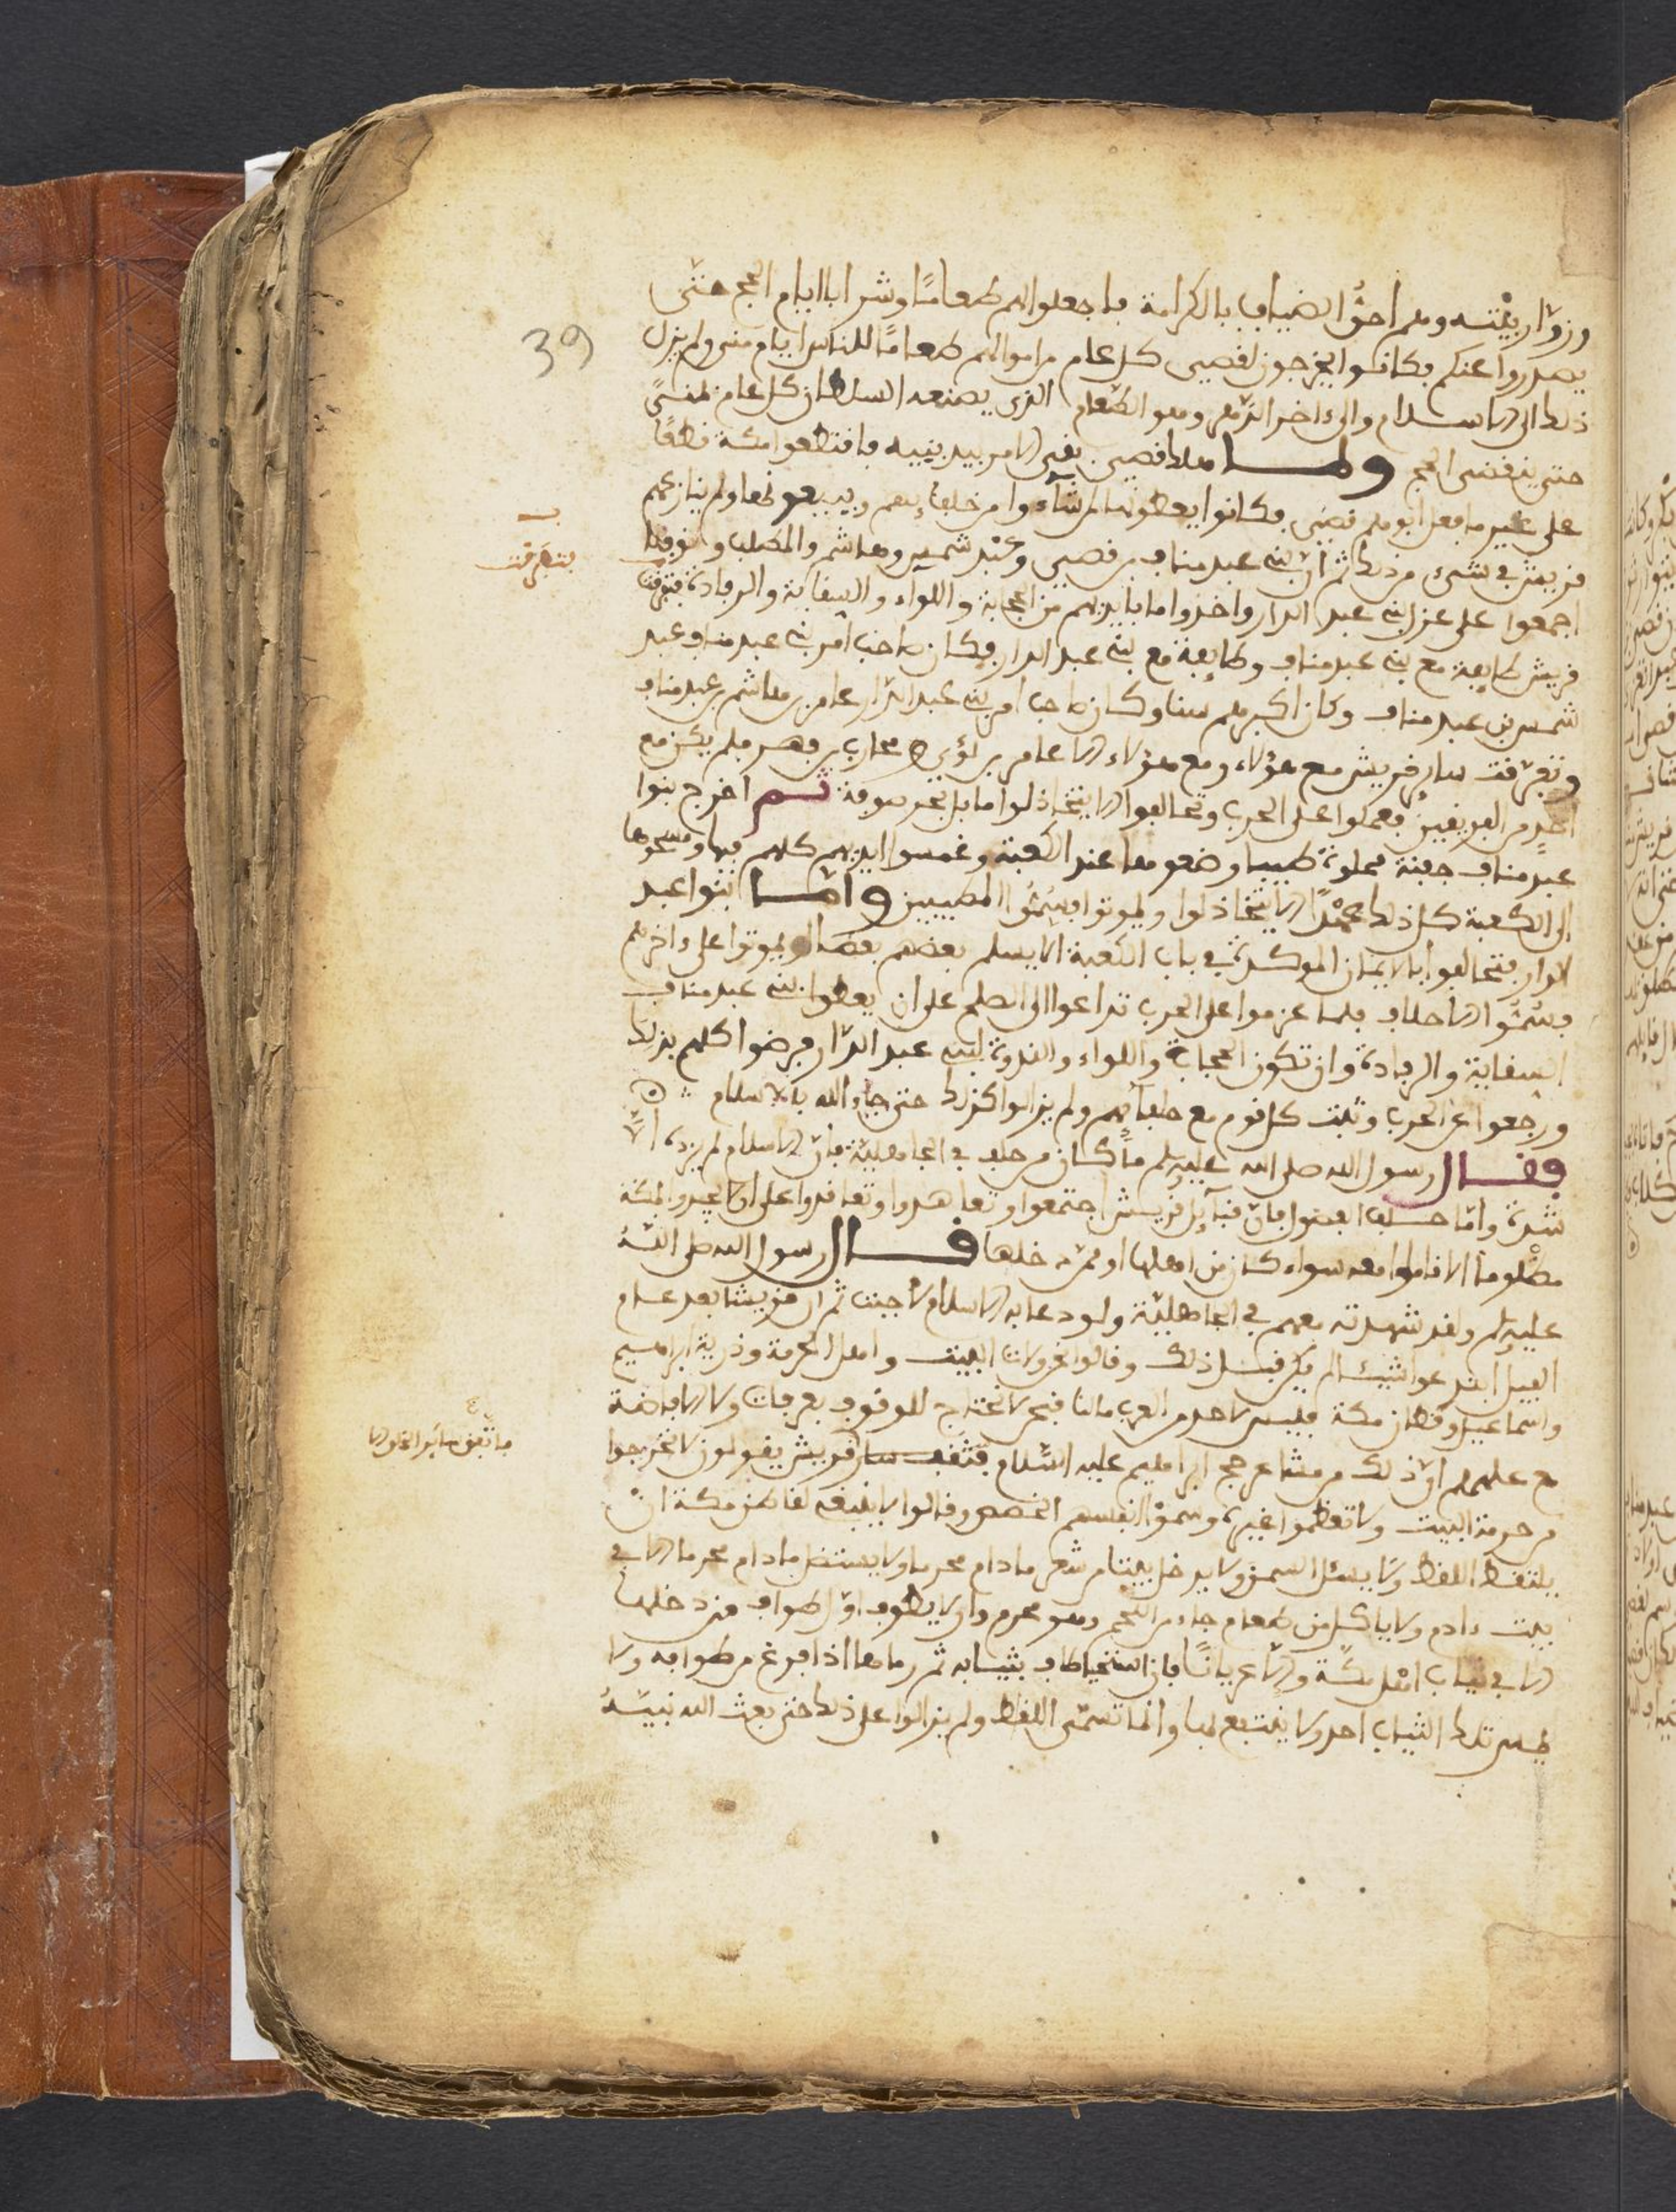 وزوّار بيْته وهم احقُّ الضياف بالكرامة فاجعلوا لهم طعامًا وشرابا ايام الحج حتّى
يصدروا عنكم فكانوا يخرجون لقصي كل عام من اموالهم طعامًا للناس ايام منى ولم يزل
ذلك الى الاسلام والى ءاخر الدّهر وهو الطّعام الذي يصنعه السلطان كل عام بمنىً
حتى ينقضي الحج ولما هلك قصي بقي الامر بيد بنيه فاقتطعوا مكة قطعًا
على غير ما فعل ابوهم قصي فكانوا يعطونها من شاءوا من حلفائهم ويبيعونها ولم ينازعهم
قريش في شيء من ذلك ثم انّ بني عبد مناف بن قصي وعبْد شمس وهاشم والمطلب ونوفلا
اجمعوا على عزل بني عبد الدار واخذوا ما بايديهم من الحجابة واللواء والسقاية والرفادة فتفرقت
قريش طايفة مع بني عبد مناف وطايفة مع بني عبد الدار فكان صاحب امر بني عبد مناف عبد
شمس بن عبد مناف وكان اكبرهم سنا وكان صاحب امر بني عبد الدّار عامر بن هاشم بن عبد مناف
وتفرّقت ساير قريش مع هؤلاء ومع هؤلاء الا عامر بن لؤي و محارب بن فهر فلم يكن مع
احدٍ من الفريقين فعمدوا على الحرب وتحالفوا الا يتخاذلوا ما بل بحر صوفة ثم اخرج بنوا
عبد مناف جفنة مملوة طيبا وضعوها عند الكعبة وغمسوا ايديهم كلهم فيها ومسحوها
الى الكعبة كل ذلك عهْدًا الا يتخاذلوا وليموتوا فسُمّوا المطيبين وامّا بنوا عبد
الدار فتحالفوا بالايمان الموكدة في باب الكعبة الا يسلم بعضهم بعضا او يموتوا على ءاخرهم
فسُمّوا الاحلاف فلما عزموا على الحرب تداعوا الى الصلح على ان يعطوا بني عبد مناف
السقاية والرفادة وان تكون الحجابة واللواء والندوة لبني عبد الدّار فرضوا كلهم بذلك
ورجعوا عن الحرب وثبت كل قوم مع حلفائهم ولم يزالوا كذلك حتى جاء الله بالاسلام
فقال رسول الله صلى الله عليه وسلم ما كان من حلف في الجاهلية فانّ الاسلام لم يزده الّا
شدة وامّا حلف الفضول فانّ قبآئل قريش اجتمعوا وتعاهدوا وتعاقدوا على ان لا يجدوا بمكة
مظْلوما الا قاموا معه سواء كان من اهلها او ممّن دخلها قال رسول الله صلى الله
عليه وسلم ولقد شهدته معهم في الجاهليّة ولو دعا به الاسلام لأجبت ثم ان قريشا بعد عام
الفيل ابتدعوا شيئا لم يكن قبل ذلك وقالوا نحن ولاة البيت واهل الحرمة وذرية ابراهيم
واسماعيل وقطان مكة فليس لاحد من العرب مالنا فنحن لا نحتاج للوقوف بعرفات ولا الافاضة
مع علمهم انّ ذلك من مشاعر حج ابراهيم عليه السّلام فتقف ساير قريش يقولون لا تخرجوا
من حرمة البيت ولا تعظموا غيره وسمّوْا انفسهم الحمس وقالوا لا ينبغي لقاطن مكة انْ
يلتقط اللقط ولا يسئل السمن ولا يدخل بيتا من شعر ما دام محرما ولا يستظل ما دام محرما الا في
بيت ءادم ولا ياكل من طعام جاء من الحجم وهو محرم وان لا يطوف اوّل طواف من دخلها
الا في ثياب اهل مكّة والّا عريانًا فان استحيا طاف بثيابه ثم رماها اذا فرغ من طوافه ولا
يلبس تلك الثياب احد ولا ينتفع بها وانما تسمّى اللقط ولم يزالوا على ذلك حتى بعث الله نبيّهُ
39
فتفرقت